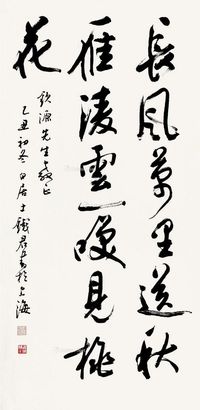 長風萬里送秋
雁凌雲一咲見桃
花
源先生教正
乙丑初冬田居士鐵君書於上海